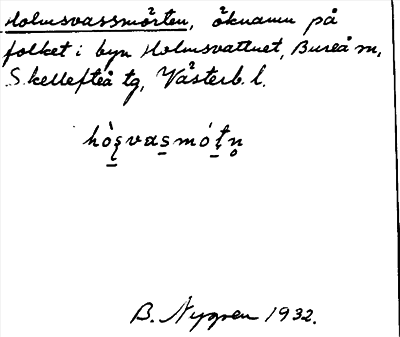 Holmsvassmörten, öknamn på
folket i byn Holmsvattnet, Bureå m,
Skellefteå tg, Västerb. l.
hò̱s̱vas̱móṯn̥
B. Nygren 1932.